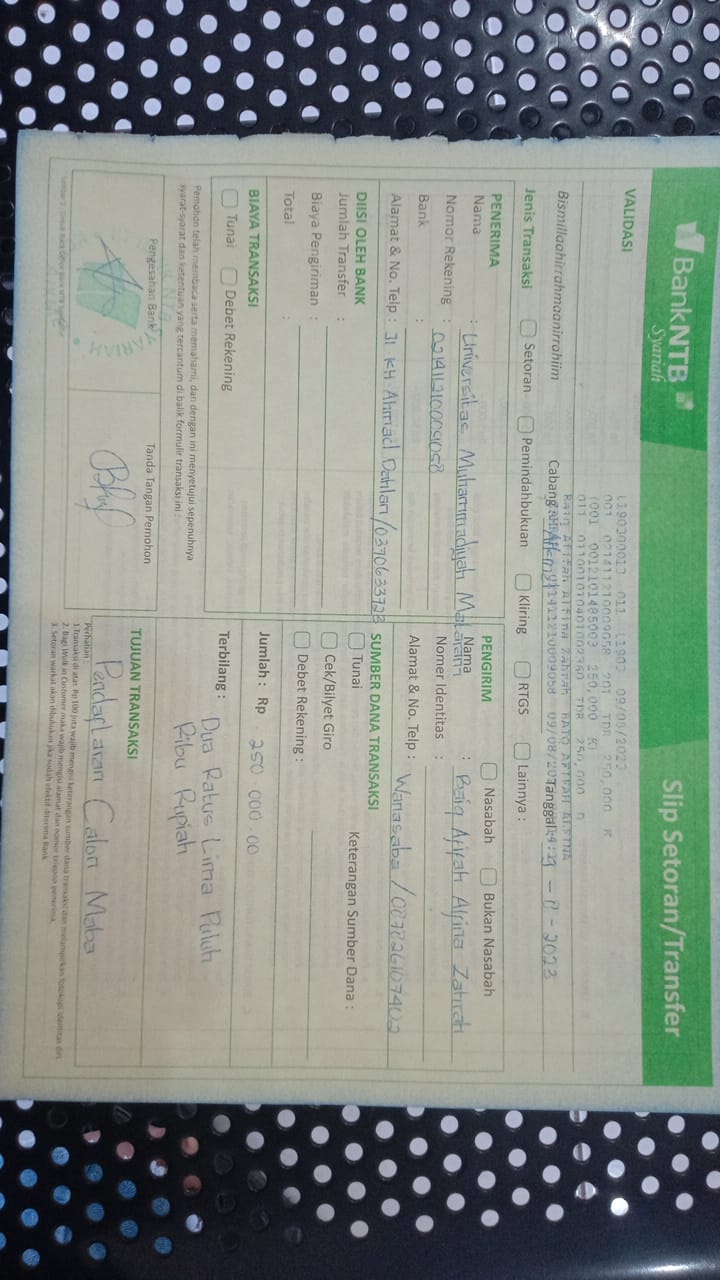 BankNTB
Syariah
Slip Setoran/Transfer
VALIDASI
L190300013 011 L1903 09/08/2023
001 0214112100009058 201 IDR 250,000 K
(001 0012101485003 250,000 K)
011 011001010401002360 IDR 250,000 D
BAIQ AFIFAH ALFINA ZAHRAH BAIQ AFIFAH ALFINA
Bismillaahirrahmaanirrahiim
Cabang :
Tanggal :
Jenis Transaksi
Setoran
Pemindahbukuan
Kliring
RTGS
Lainnya :
PENERIMA
Nama : Universitas Muhammadiyah Mataram
Nomor Rekening : 0214112100009058
Bank :
Alamat & No. Telp : Jl KH Ahmad Dahlan / 0370633723
PENGIRIM
Nasabah
Bukan Nasabah
Nama : Baiq Afifah Alfina Zahrah
Nomer Identitas :
Alamat & No. Telp : Wanasaba / 087826107402
DIISI OLEH BANK
Jumlah Transfer :
Biaya Pengiriman :
Total :
SUMBER DANA TRANSAKSI
Tunai
Keterangan Sumber Dana :
Cek/Bilyet Giro
Debet Rekening :
BIAYA TRANSAKSI
Tunai
Debet Rekening
Jumlah : Rp 250 000.00
Terbilang : Dua Ratus Lima Puluh
Ribu Rupiah
Pemohon telah membaca serta memahami, dan dengan ini menyetujui sepenuhnya
syarat-syarat dan ketentuan yang tercantum di balik formulir transaksi ini :
Pengesahan Bank
Tanda Tangan Pemohon
TUJUAN TRANSAKSI
Pendaftaran Calon Maba
Perhatian :
1.Transaksi di atas Rp 100 juta wajib mengisi keterangan sumber dana transaksi dan melampirkan fotokopi identitas diri.
2. Bagi Walk in Customer maka wajib mengisi alamat dan nomor telepon penerima.
3. Setoran warkat akan dibukukan jika sudah efektif diterima Bank.